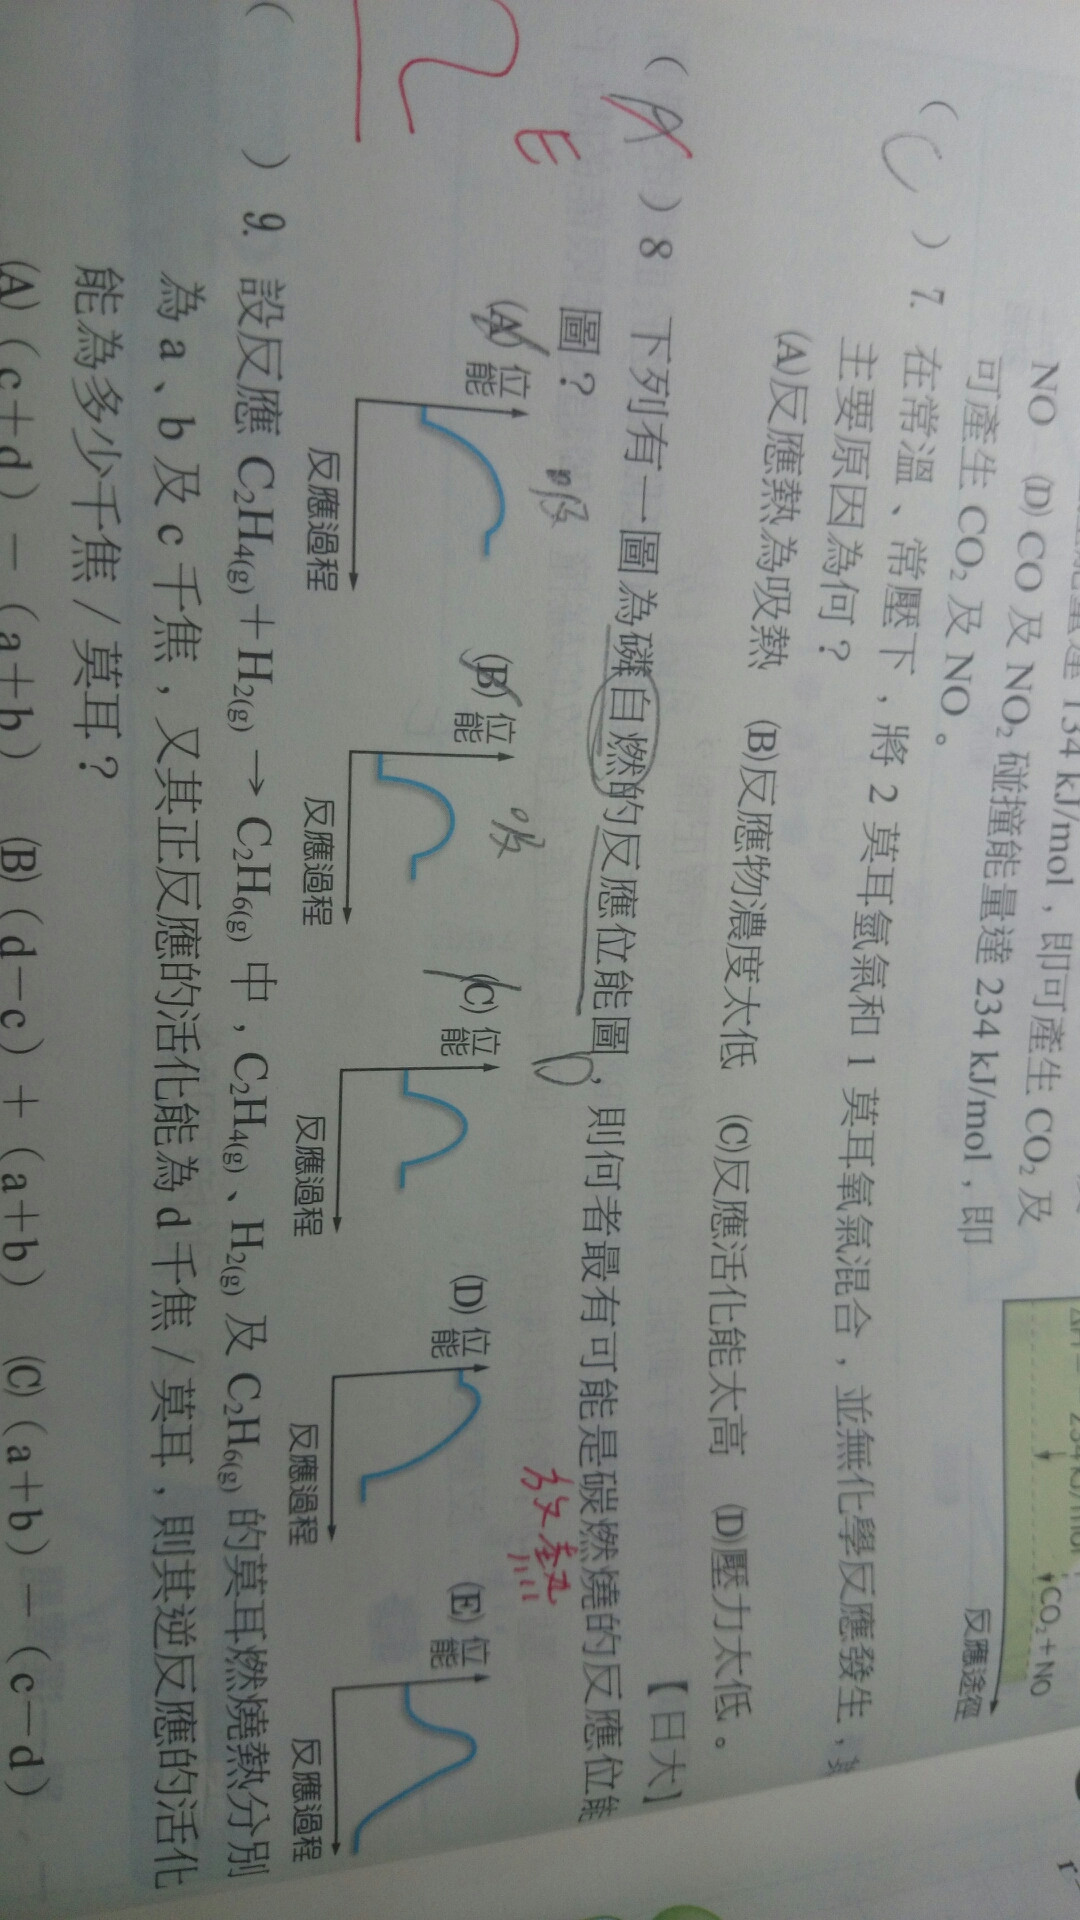 134 kJ/mol，即可產生 CO₂ 及
NO　(D) CO 及 NO₂ 碰撞能量達 234 kJ/mol，即
可產生 CO₂ 及 NO。
CO₂＋NO
反應途徑
( C ) 7. 在常溫、常壓下，將 2 莫耳氫氣和 1 莫耳氧氣混合，並無化學反應發生，其
主要原因為何？
(A)反應熱為吸熱　(B)反應物濃度太低　(C)反應活化能太高　(D)壓力太低。
【日大】
( A ) 8 下列有一圖為磷自燃的反應位能圖，則何者最有可能是碳燃燒的反應位能
圖？
E
吸
吸
放熱
(A) 位能 反應過程
(B) 位能 反應過程
(C) 位能 反應過程
(D) 位能 反應過程
(E) 位能 反應過程
( ) 9. 設反應 C₂H₄(g)＋H₂(g) → C₂H₆(g) 中，C₂H₄(g)、H₂(g) 及 C₂H₆(g) 的莫耳燃燒熱分別
為 a、b 及 c 千焦，又其正反應的活化能為 d 千焦／莫耳，則其逆反應的活化
能為多少千焦／莫耳？
(A)（c＋d）－（a＋b）　(B)（d－c）＋（a＋b）　(C)（a＋b）－（c－d）